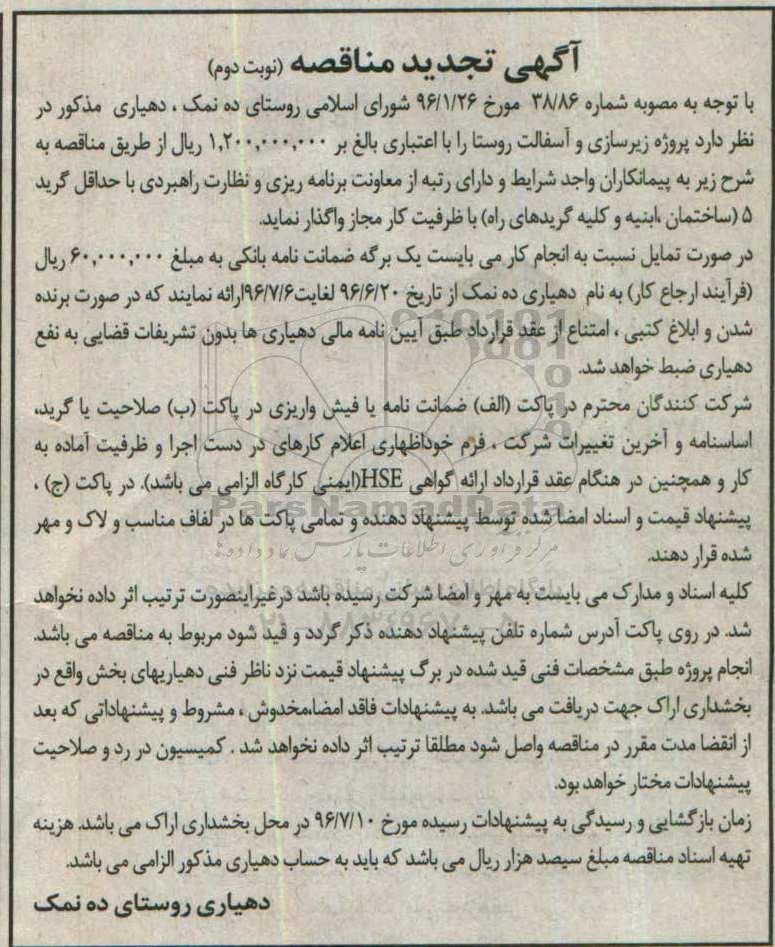 آگهی تجدید مناقصه (نوبت دوم)
با توجه به مصوبه شماره ۳۸/۸۶ مورخ ۹۶/۱/۲۶ شورای اسلامی روستای ده نمک ، دهیاری مذکور در
نظر دارد پروژه زیرسازی و آسفالت روستا را با اعتباری بالغ بر ۱,۲۰۰,۰۰۰,۰۰۰ ریال از طریق مناقصه به
شرح زیر به پیمانکاران واجد شرایط و دارای رتبه از معاونت برنامه ریزی و نظارت راهبردی با حداقل گرید
۵ (ساختمان ،ابنیه و کلیه گریدهای راه) با ظرفیت کار مجاز واگذار نماید.
در صورت تمایل نسبت به انجام کار می بایست یک برگه ضمانت نامه بانکی به مبلغ ۶۰,۰۰۰,۰۰۰ ریال
(فرآیند ارجاع کار) به نام دهیاری ده نمک از تاریخ ۹۶/۶/۲۰ لغایت۹۶/۷/۶ارائه نمایند که در صورت برنده
شدن و ابلاغ کتبی ، امتناع از عقد قرارداد طبق آیین نامه مالی دهیاری ها بدون تشریفات قضایی به نفع
دهیاری ضبط خواهد شد.
شرکت کنندگان محترم در پاکت (الف) ضمانت نامه یا فیش واریزی در پاکت (ب) صلاحیت یا گرید،
اساسنامه و آخرین تغییرات شرکت ، فرم خوداظهاری اعلام کارهای در دست اجرا و ظرفیت آماده به
کار و همچنین در هنگام عقد قرارداد ارائه گواهی HSE(ایمنی کارگاه الزامی می باشد). در پاکت (ج) ،
پیشنهاد قیمت و اسناد امضا شده توسط پیشنهاد دهنده و تمامی پاکت ها در لفاف مناسب و لاک و مهر
شده قرار دهند.
کلیه اسناد و مدارک می بایست به مهر و امضا شرکت رسیده باشد درغیراینصورت ترتیب اثر داده نخواهد
شد. در روی پاکت آدرس شماره تلفن پیشنهاد دهنده ذکر گردد و قید شود مربوط به مناقصه می باشد.
انجام پروژه طبق مشخصات فنی قید شده در برگ پیشنهاد قیمت نزد ناظر فنی دهیاریهای بخش واقع در
بخشداری اراک جهت دریافت می باشد. به پیشنهادات فاقد امضا،مخدوش ، مشروط و پیشنهاداتی که بعد
از انقضا مدت مقرر در مناقصه واصل شود مطلقا ترتیب اثر داده نخواهد شد . کمیسیون در رد و صلاحیت
پیشنهادات مختار خواهد بود.
زمان بازگشایی و رسیدگی به پیشنهادات رسیده مورخ ۹۶/۷/۱۰ در محل بخشداری اراک می باشد. هزینه
تهیه اسناد مناقصه مبلغ سیصد هزار ریال می باشد که باید به حساب دهیاری مذکور الزامی می باشد.
دهیاری روستای ده نمک
ParsNamadData
مرکز فرآوری اطلاعات پارس نماد داده ها